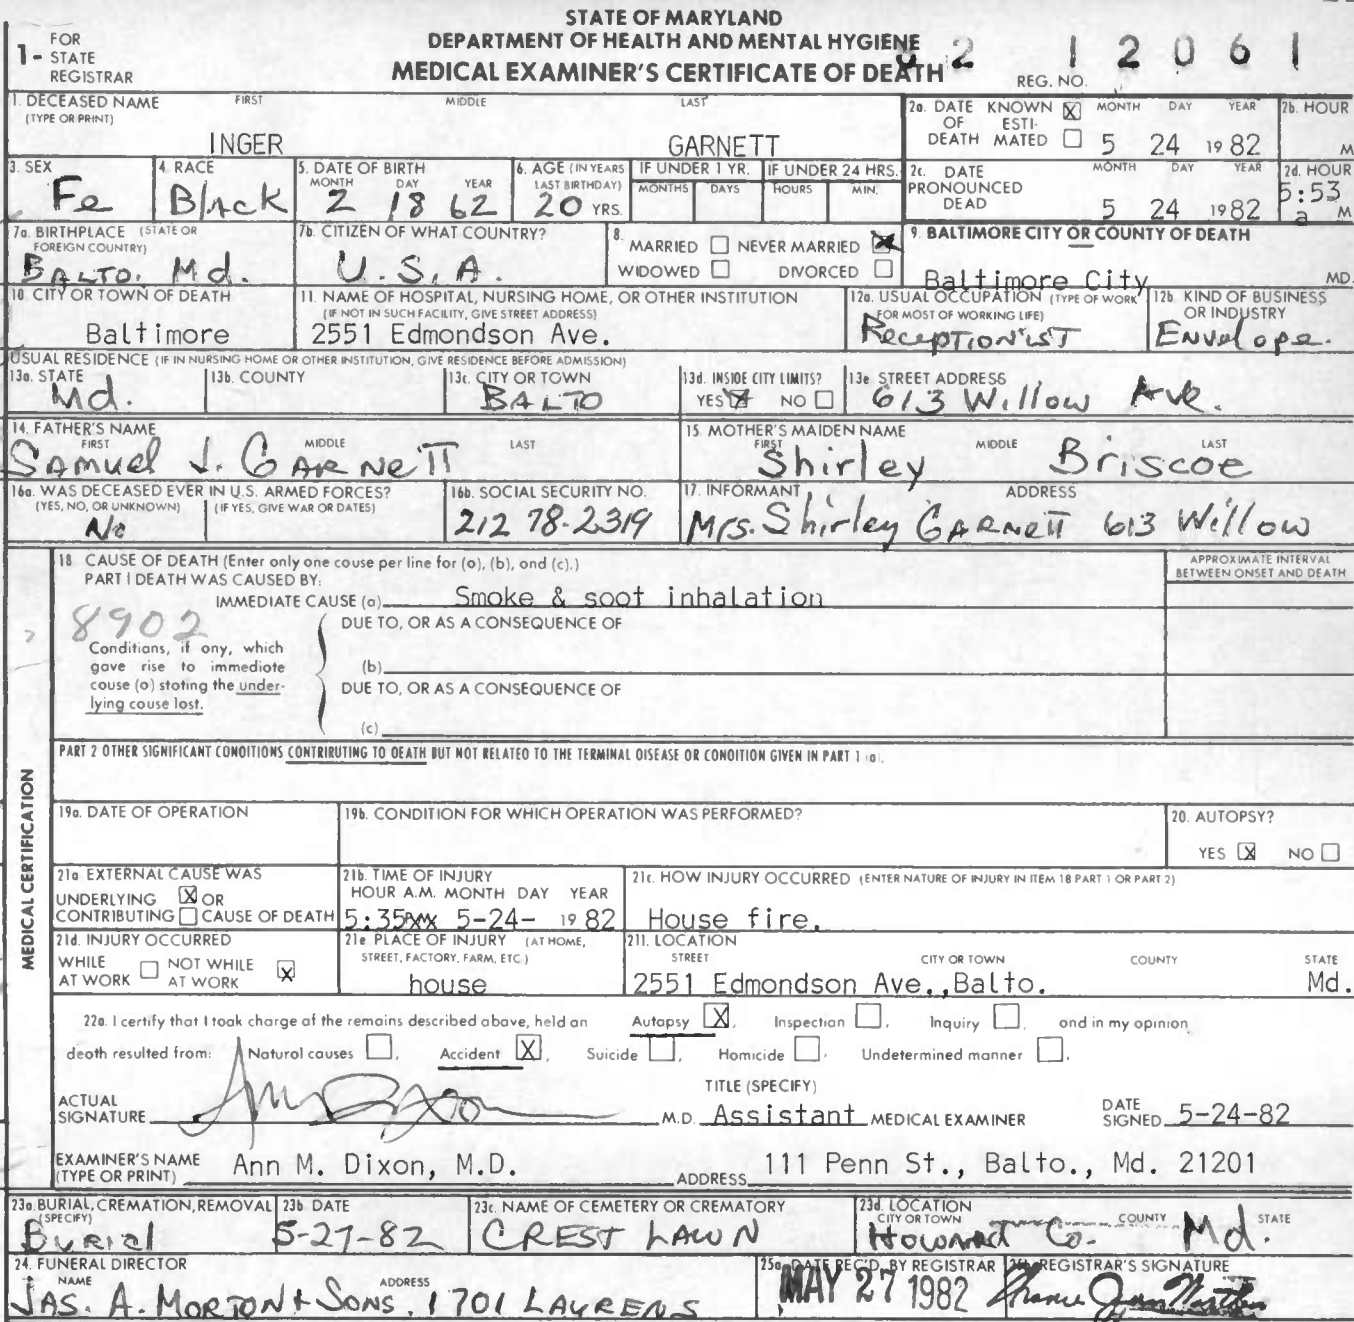 STATE OF MARYLAND
DEPARTMENT OF HEALTH AND MENTAL HYGIENE
MEDICAL EXAMINER'S CERTIFICATE OF DEATH
1- FOR STATE REGISTRAR
REG. NO. 82 12061
1. DECEASED NAME (TYPE OR PRINT) FIRST MIDDLE LAST
INGER GARNETT
2a. DATE OF DEATH KNOWN X ESTIMATED MONTH DAY YEAR
5 24 1982
2b. HOUR
M
3. SEX
Fe
4. RACE
Black
5. DATE OF BIRTH MONTH DAY YEAR
2 18 62
6. AGE (IN YEARS LAST BIRTHDAY)
20 YRS.
IF UNDER 1 YR. MONTHS DAYS
IF UNDER 24 HRS. HOURS MIN.
2c. DATE PRONOUNCED DEAD MONTH DAY YEAR
5 24 1982
2d. HOUR
5:53 a M
7a. BIRTHPLACE (STATE OR FOREIGN COUNTRY)
BALTO. Md.
7b. CITIZEN OF WHAT COUNTRY?
U.S.A.
8. MARRIED NEVER MARRIED X
WIDOWED DIVORCED
9. BALTIMORE CITY OR COUNTY OF DEATH
Baltimore City MD.
10. CITY OR TOWN OF DEATH
Baltimore
11. NAME OF HOSPITAL, NURSING HOME, OR OTHER INSTITUTION
(IF NOT IN SUCH FACILITY, GIVE STREET ADDRESS)
2551 Edmondson Ave.
12a. USUAL OCCUPATION (TYPE OF WORK FOR MOST OF WORKING LIFE)
Receptionist
12b. KIND OF BUSINESS OR INDUSTRY
Envelope.
USUAL RESIDENCE (IF IN NURSING HOME OR OTHER INSTITUTION, GIVE RESIDENCE BEFORE ADMISSION)
13a. STATE
Md.
13b. COUNTY
13c. CITY OR TOWN
BALTO
13d. INSIDE CITY LIMITS?
YES X NO
13e STREET ADDRESS
613 Willow Ave.
14. FATHER'S NAME FIRST MIDDLE LAST
Samuel J. GARNETT
15. MOTHER'S MAIDEN NAME FIRST MIDDLE LAST
Shirley Briscoe
16a. WAS DECEASED EVER IN U.S. ARMED FORCES?
(YES, NO, OR UNKNOWN) (IF YES, GIVE WAR OR DATES)
No
16b. SOCIAL SECURITY NO.
212 78-2319
17. INFORMANT ADDRESS
Mrs. Shirley GARNETT 613 Willow
MEDICAL CERTIFICATION
18 CAUSE OF DEATH (Enter only one cause per line for (a), (b), and (c).)
PART I DEATH WAS CAUSED BY:
APPROXIMATE INTERVAL BETWEEN ONSET AND DEATH
IMMEDIATE CAUSE (a) Smoke & soot inhalation
8902
DUE TO, OR AS A CONSEQUENCE OF
Conditions, if any, which
gave rise to immediate
cause (a) stating the under-
lying cause last.
(b)
DUE TO, OR AS A CONSEQUENCE OF
(c)
PART 2 OTHER SIGNIFICANT CONDITIONS CONTRIBUTING TO DEATH BUT NOT RELATED TO THE TERMINAL DISEASE OR CONDITION GIVEN IN PART 1 (a).
19a. DATE OF OPERATION
19b. CONDITION FOR WHICH OPERATION WAS PERFORMED?
20. AUTOPSY?
YES X NO
21a EXTERNAL CAUSE WAS
UNDERLYING X OR
CONTRIBUTING CAUSE OF DEATH
21b. TIME OF INJURY
HOUR A.M. MONTH DAY YEAR
5:35 5-24- 1982
21c. HOW INJURY OCCURRED (ENTER NATURE OF INJURY IN ITEM 18 PART 1 OR PART 2)
House fire.
21d. INJURY OCCURRED
WHILE AT WORK NOT WHILE AT WORK X
21e PLACE OF INJURY (AT HOME, STREET, FACTORY, FARM, ETC.)
house
21f. LOCATION STREET CITY OR TOWN COUNTY STATE
2551 Edmondson Ave.,Balto. Md.
22a. I certify that I took charge of the remains described above, held an Autopsy X, Inspection, Inquiry, and in my opinion
death resulted from: Natural causes, Accident X, Suicide, Homicide, Undetermined manner.
ACTUAL SIGNATURE
M.D.
TITLE (SPECIFY)
Assistant MEDICAL EXAMINER
DATE SIGNED 5-24-82
EXAMINER'S NAME (TYPE OR PRINT) Ann M. Dixon, M.D.
ADDRESS 111 Penn St., Balto., Md. 21201
23a. BURIAL, CREMATION, REMOVAL (SPECIFY)
Burial
23b DATE
5-27-82
23c. NAME OF CEMETERY OR CREMATORY
CREST LAWN
23d. LOCATION CITY OR TOWN COUNTY STATE
Howard Co. Md.
24. FUNERAL DIRECTOR NAME ADDRESS
JAS. A. MORTON & SONS. 1701 LAURENS
25a. DATE REC'D. BY REGISTRAR
MAY 27 1982
25b. REGISTRAR'S SIGNATURE